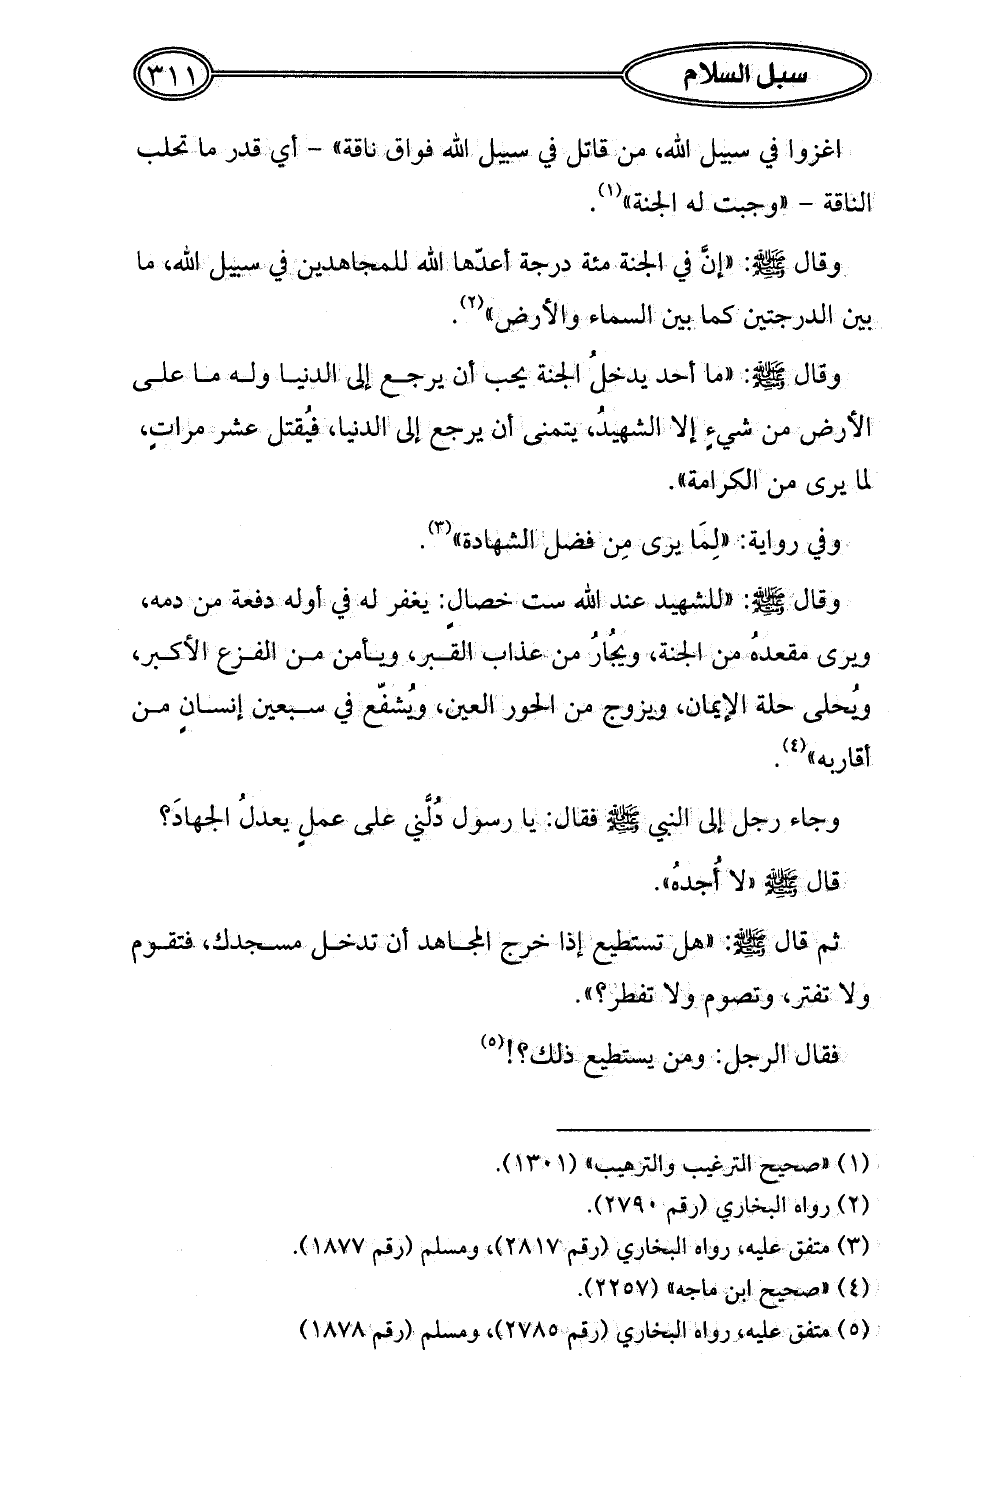 سبل السلام
٣١١
اغزوا في سبيل الله، من قاتل في سبيل الله فواق ناقة» – أي قدر ما تحلب
الناقة – «وجبت له الجنة»(١).
وقال ﷺ: «إنَّ في الجنة مئة درجة أعدّها الله للمجاهدين في سبيل الله، ما
بين الدرجتين كما بين السماء والأرض»(٢).
وقال ﷺ: «ما أحد يدخلُ الجنة يحب أن يرجع إلى الدنيا وله ما على
الأرض من شيءٍ إلا الشهيدُ، يتمنى أن يرجع إلى الدنيا، فيُقتل عشر مراتٍ،
لما يرى من الكرامة».
وفي رواية: «لِمَا يرى مِن فضل الشهادة»(٣).
وقال ﷺ: «للشهيد عند الله ست خصالٍ: يغفر له في أوله دفعة من دمه،
ويرى مقعدهُ من الجنة، ويجُارُ من عذاب القبر، ويأمن من الفزع الأكبر،
ويُحلى حلة الإيمان، ويزوج من الحور العين، ويُشفّع في سبعين إنسانٍ من
أقاربه»(٤).
وجاء رجل إلى النبي ﷺ فقال: يا رسول دُلَّني على عملٍ يعدلُ الجهادَ؟
قال ﷺ «لا أُجدهُ».
ثم قال ﷺ: «هل تستطيع إذا خرج المجاهد أن تدخل مسجدك، فتقوم
ولا تفتر، وتصوم ولا تفطر؟».
فقال الرجل: ومن يستطيع ذلك؟!(٥)
(١) «صحيح الترغيب والترهيب» (١٣٠١).
(٢) رواه البخاري (رقم ٢٧٩٠).
(٣) متفق عليه، رواه البخاري (رقم ٢٨١٧)، ومسلم (رقم ١٨٧٧).
(٤) «صحيح ابن ماجه» (٢٢٥٧).
(٥) متفق عليه، رواه البخاري (رقم ٢٧٨٥)، ومسلم (رقم ١٨٧٨)